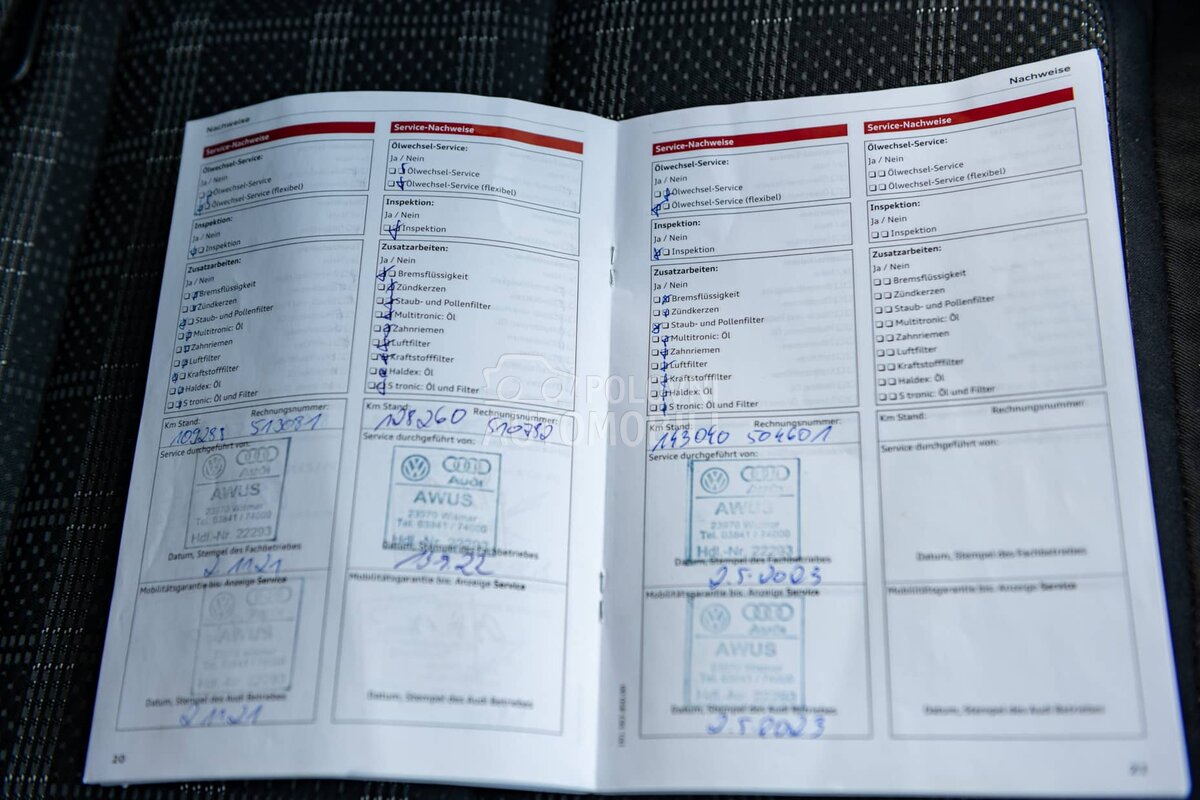 Nachweise
Service-Nachweise
Ölwechsel-Service:
Ja / Nein
Ölwechsel-Service
Ölwechsel-Service (flexibel)
Inspektion:
Ja / Nein
Inspektion
Zusatzarbeiten:
Ja / Nein
Bremsflüssigkeit
Zündkerzen
Staub- und Pollenfilter
Multitronic: Öl
Zahnriemen
Luftfilter
Kraftstofffilter
Haldex: Öl
S tronic: Öl und Filter
Km Stand: Rechnungsnummer:
513081
Service durchgeführt von:
Audi
AWUS
23970 Wismar
Tel. 03841 / 74000
Hdl.-Nr. 22293
Datum, Stempel des Fachbetriebes
2.11.21
Mobilitätsgarantie bis: Anzeige Service
Audi
AWUS
23970 Wismar
Tel. 03841 / 74000
Datum, Stempel des Audi Betriebes
2.11.21
20
Service-Nachweise
Ölwechsel-Service:
Ja / Nein
Ölwechsel-Service
Ölwechsel-Service (flexibel)
Inspektion:
Ja / Nein
Inspektion
Zusatzarbeiten:
Ja / Nein
Bremsflüssigkeit
Zündkerzen
Staub- und Pollenfilter
Multitronic: Öl
Zahnriemen
Luftfilter
Kraftstofffilter
Haldex: Öl
S tronic: Öl und Filter
Km Stand: Rechnungsnummer:
128260 510792
Service durchgeführt von:
Audi
AWUS
23970 Wismar
Tel. 03841 / 74000
Hdl.-Nr. 22293
Datum, Stempel des Fachbetriebes
Mobilitätsgarantie bis: Anzeige Service
Datum, Stempel des Audi Betriebes
Service-Nachweise
Ölwechsel-Service:
Ja / Nein
Ölwechsel-Service
Ölwechsel-Service (flexibel)
Inspektion:
Ja / Nein
Inspektion
Zusatzarbeiten:
Ja / Nein
Bremsflüssigkeit
Zündkerzen
Staub- und Pollenfilter
Multitronic: Öl
Zahnriemen
Luftfilter
Kraftstofffilter
Haldex: Öl
S tronic: Öl und Filter
Km Stand: Rechnungsnummer:
143040 504601
Service durchgeführt von:
Audi
AWUS
23970 Wismar
Tel. 03841 / 74000
Hdl.-Nr. 22293
Datum, Stempel des Fachbetriebes
2.5.2023
Mobilitätsgarantie bis: Anzeige Service
Audi
AWUS
23970 Wismar
Tel. 03841 / 74000
Hdl.-Nr. 22293
Datum, Stempel des Audi Betriebes
2.5.2023
Nachweise
Service-Nachweise
Ölwechsel-Service:
Ja / Nein
Ölwechsel-Service
Ölwechsel-Service (flexibel)
Inspektion:
Ja / Nein
Inspektion
Zusatzarbeiten:
Ja / Nein
Bremsflüssigkeit
Zündkerzen
Staub- und Pollenfilter
Multitronic: Öl
Zahnriemen
Luftfilter
Kraftstofffilter
Haldex: Öl
S tronic: Öl und Filter
Km Stand: Rechnungsnummer:
Service durchgeführt von:
Datum, Stempel des Fachbetriebes
Mobilitätsgarantie bis: Anzeige Service
Datum, Stempel des Audi Betriebes
POLOVNI
AUTOMOBILI